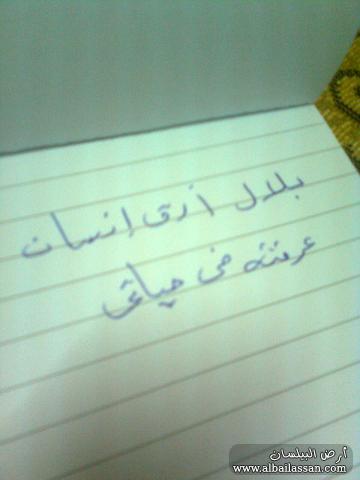 بلال أرق إنسان
عرفته في حياتي
أرض البيلسان
www.albailassan.com